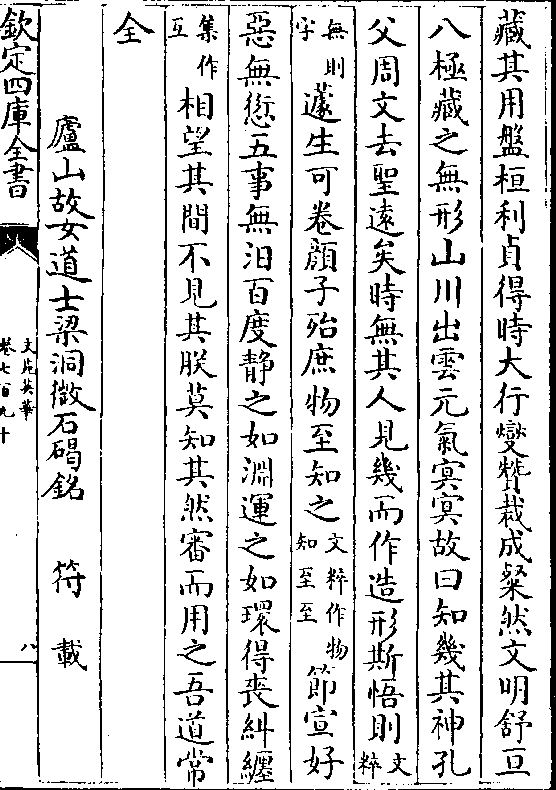 藏其用盤桓利貞得時大行變贊裁成粲然文明舒亘
八極藏之無形山川出雲元氣冥冥故曰知幾其神孔
父周文去聖遠矣時無其人見幾而作造形斯悟則文粹
無則字蘧生可卷顔子殆庶物至知之文粹作物知至至節宣好
惡無愆五事無汨百度静之如淵運之如環得喪糾纒
集作互相望其間不見其朕莫知其然審而用之吾道常
全
廬山故女道士梁洞微石碣銘 符載
欽定四庫全書
文苑英華
卷七百九十
八